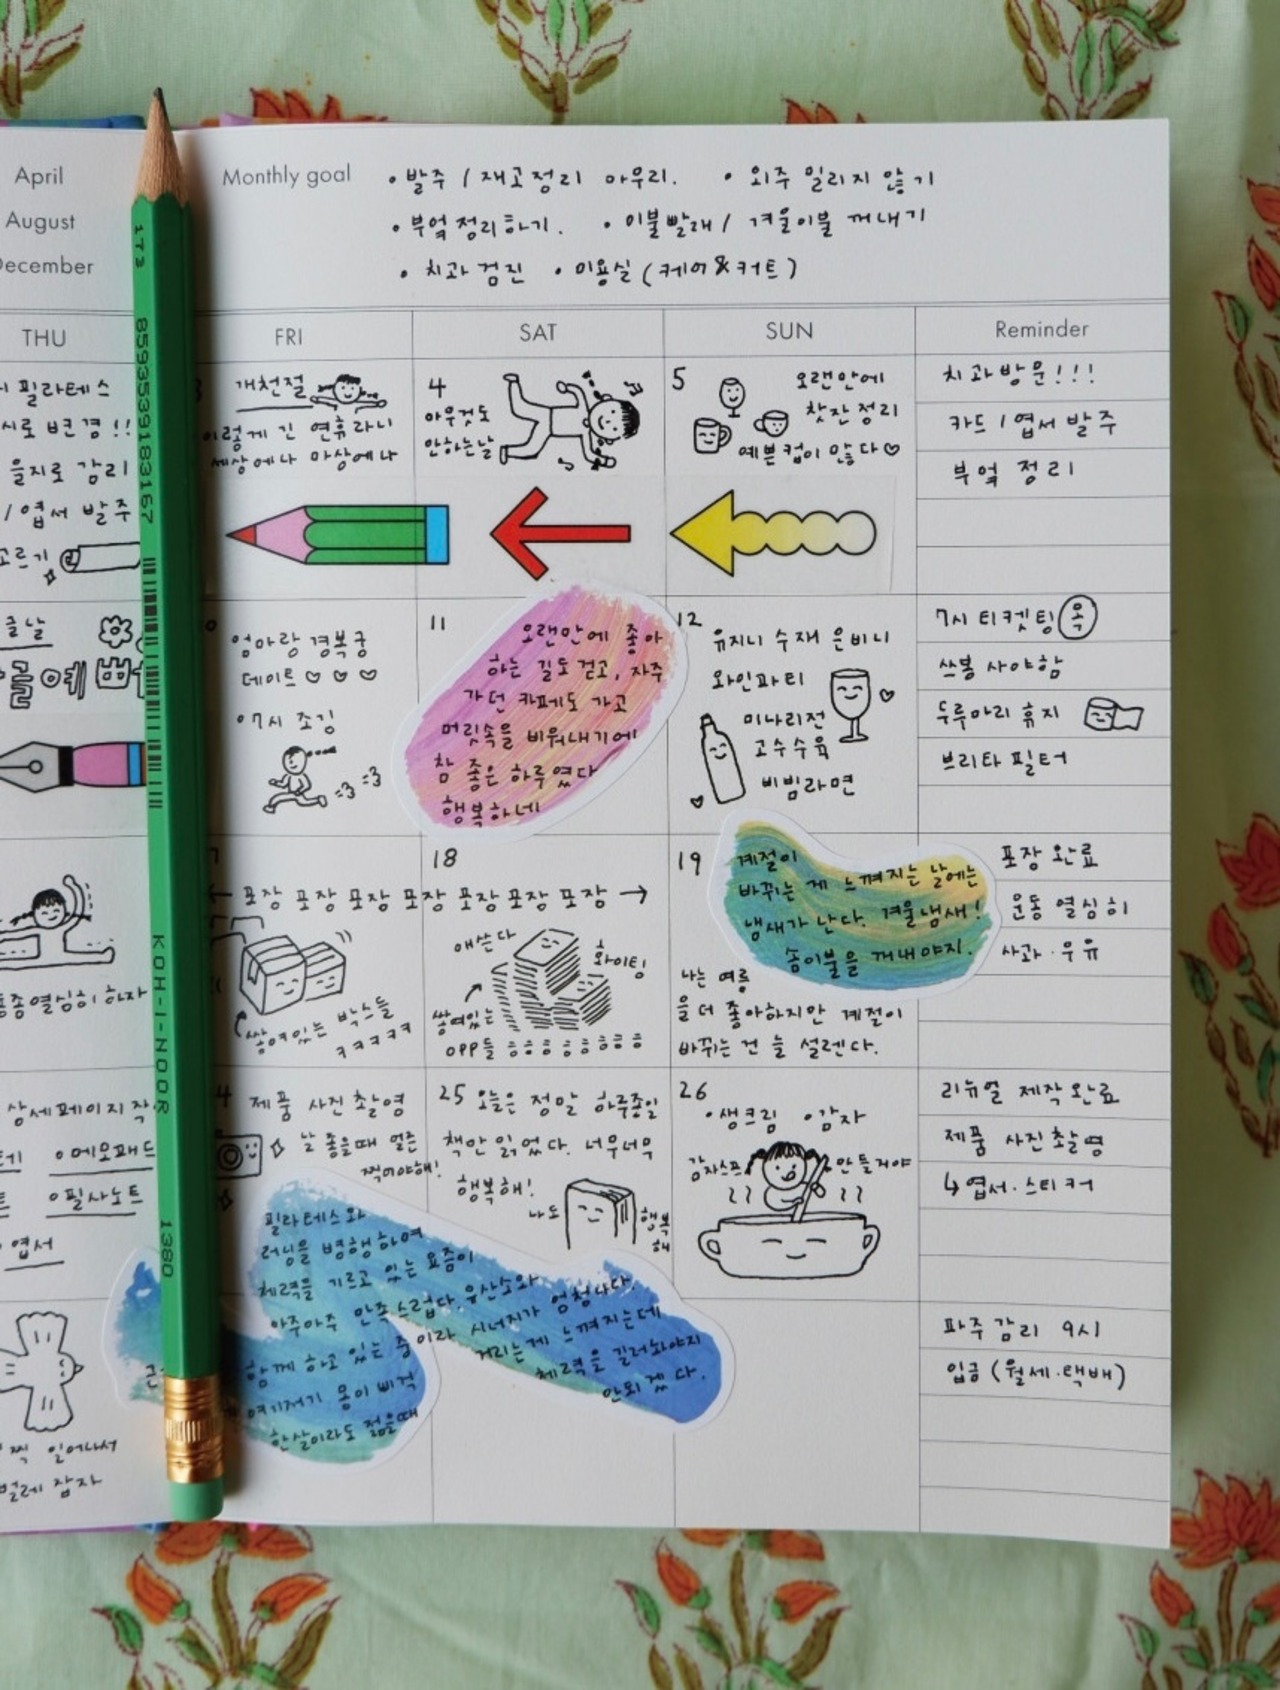 April
August
December
Monthly goal
• 발주 / 재고정리 마무리. • 외주 밀리지 않기
• 부엌정리하기. • 이불빨래 / 겨울이불 꺼내기
• 치과검진 • 이용실 (케어&커트)
THU
FRI
SAT
SUN
Reminder
필라테스
시로 변경!!
을지로 감리
/ 엽서 발주
고르기
3 개천절
이렇게 긴 연휴라니
세상에나 마상에나
4
아무것도
안하는날
5
오랜만에
찻잔정리
예쁜 컵이 많다♡
치과방문!!!
카드 / 엽서 발주
부엌 정리
글날
글예
엄마랑 경복궁
데이트♡♡♡
•7시 조깅
11
오랜만에 좋아
하는 길도 걷고, 자주
가던 카페도 가고
머릿속을 비워내기에
참 좋은 하루였다
행복하네
12
유지니 수재 은비니
와인파티
미나리전
고수수육
비빔라면
7시 티켓팅 옥
쓰봉 사야함
두루마리 휴지
브리타 필터
열심히 하자
7
← 포장 포장 포장 포장 포장 포장 포장 →
쌓여있는 박스들
ㅋㅋㅋㅋㅋ
18
애쓴다
화이팅
쌓여있는
OPP들 ㅎㅎㅎㅎㅎㅎㅎ
19
계절이
바뀌는 게 느껴지는 날에는
냄새가 난다. 겨울냄새!
솜이불을 꺼내야지.
나는 여름
을 더 좋아하지만 계절이
바뀌는 건 늘 설렌다.
포장 완료
운동 열심히
사과·우유
상세페이지 작
•메모패드
•필사노트
엽서
4 제품 사진촬영
날 좋을때 얼른
찍어야해!
25 오늘은 정말 하루종일
책만 읽었다. 너무너무
행복해!
나도
행복
해
26
•생크림 •감자
감자스프
만들거야
리뉴얼 제작완료
제품 사진촬영
↳ 엽서·스티커
필라테스와
러닝을 병행하여
체력을 기르고 있는 요즘이
아주아주 만족스럽다. 유산소와
함께 하고 있는 중이라 시너지가 엄청나다.
여기저기 몸이 삐걱
거리는게 느껴지는데
한살이라도 젊을때
체력을 길러놔야지
안되겠다.
찍 일어나서
벌레 잡자
파주감리 9시
입금 (월세·택배)
173
8593539183167
KOH-I-NOOR
1380